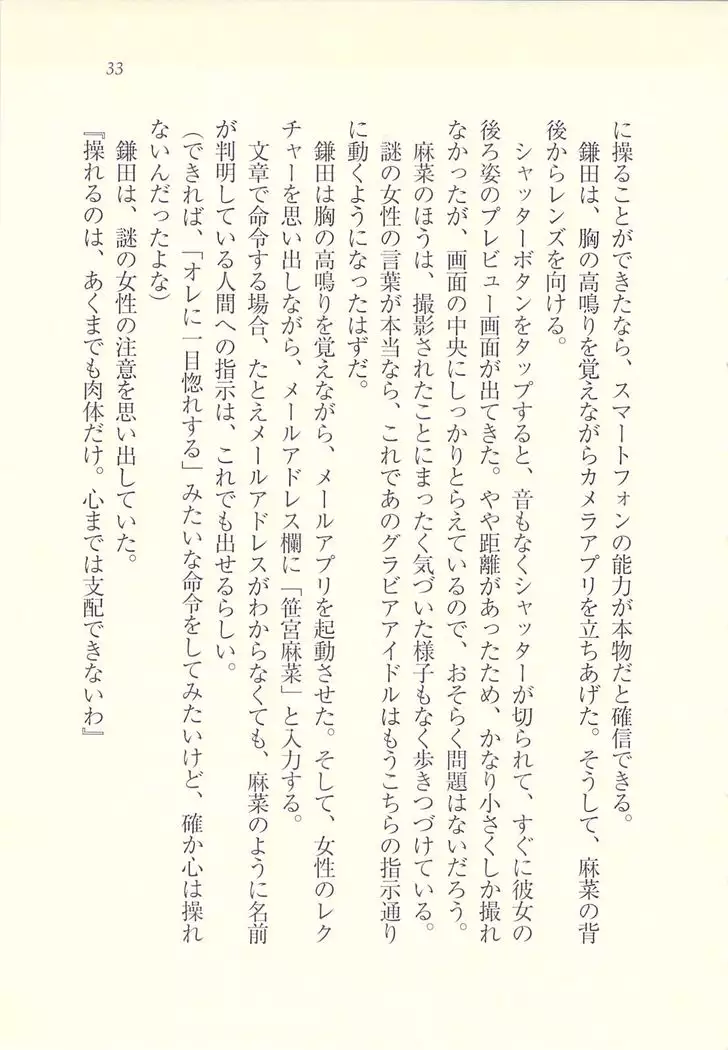 33
に操ることができたなら、スマートフォンの能力が本物だと確信できる。
鎌田は、胸の高鳴りを覚えながらカメラアプリを立ちあげた。そうして、麻菜の背
後からレンズを向ける。
シャッターボタンをタップすると、音もなくシャッターが切られて、すぐに彼女の
後ろ姿のプレビュー画面が出てきた。やや距離があったため、かなり小さくしか撮れ
なかったが、画面の中央にしっかりとらえているので、おそらく問題はないだろう。
麻菜のほうは、撮影されたことにまったく気づいた様子もなく歩きつづけている。
謎の女性の言葉が本当なら、これであのグラビアアイドルはもうこちらの指示通り
に動くようになったはずだ。
鎌田は胸の高鳴りを覚えながら、メールアプリを起動させた。そして、女性のレク
チャーを思い出しながら、メールアドレス欄に「笹宮麻菜」と入力する。
文章で命令する場合、たとえメールアドレスがわからなくても、麻菜のように名前
が判明している人間への指示は、これでも出せるらしい。
（できれば、「オレに一目惚れする」みたいな命令をしてみたいけど、確か心は操れ
ないんだったよな）
鎌田は、謎の女性の注意を思い出していた。
『操れるのは、あくまでも肉体だけ。心までは支配できないわ』